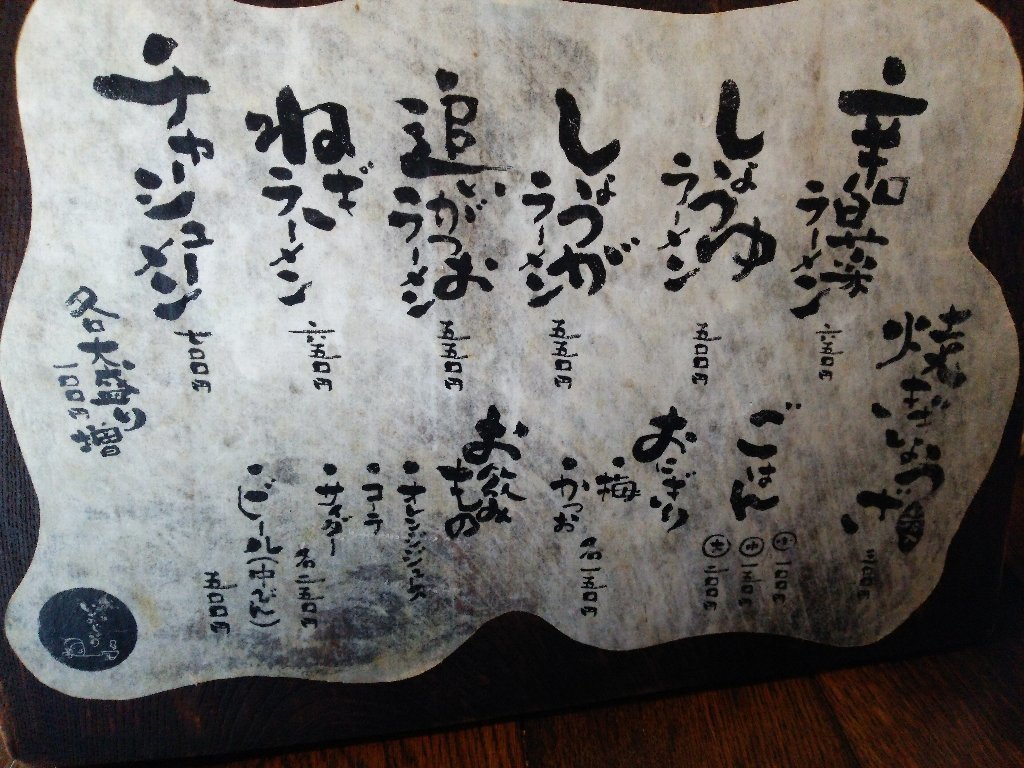 辛白菜
ラーメン
六五〇円
しょうゆ
ラーメン
五〇〇円
しょうが
ラーメン
五五〇円
追いがつお
ラーメン
五五〇円
ねぎ
ラーメン
六五〇円
チャーシュー
メン
七〇〇円
各大盛り
一〇〇円増
ごはん
小 一〇〇円
中 一五〇円
大 二〇〇円
おにぎり
・梅
・かつお
各一五〇円
お飲み
もの
・オレンジジュース
・コーラ
・サイダー
各一五〇円
・ビール(中びん)
五〇〇円